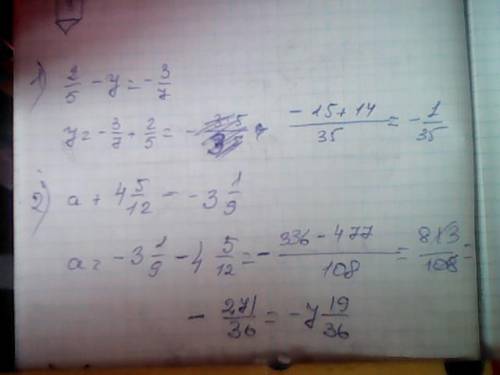 1) 2/5 - y = - 3/7
y = - 3/7 + 2/5 = - (-15+14)/35 = - 1/35
2) a + 4 5/12 = - 3 1/9
a = - 3 1/9 - 4 5/12 = - (336 - 477)/108 = 813/108 =
- 271/36 = - 7 19/36